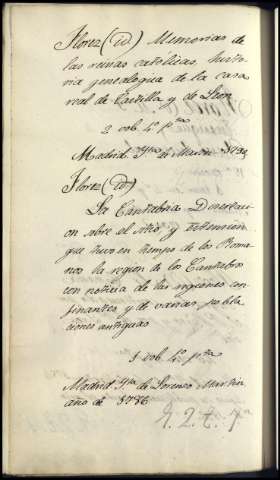 Florez (id) Memorias de
las reinas catolicas, histo
ria genealogica de la casa
real de Castilla y de Leon
2 vol. 4º pta
Madrid Ymª de Marin
Florez (id)
La Cantabria Disertaci
on sobre el sitio y estension
que tuvo en tiempo de los Roma
nos la region de los Cantabros
con noticia de las regiones con
finantes y de varias pobla
ciones antiguas
1 vol. 4º pta
Madrid Ymta de Lorenzo Martin
año de 1786